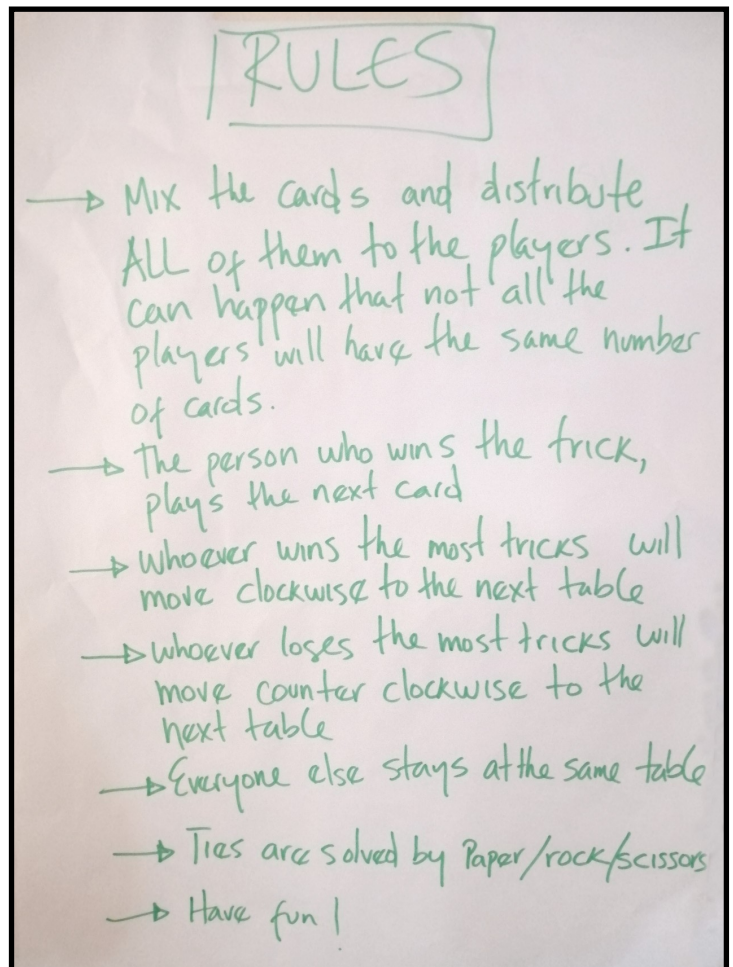 RULES
→ Mix the cards and distribute
ALL of them to the players. It
can happen that not all the
players will have the same number
of cards.
→ The person who wins the trick,
plays the next card
→ Whoever wins the most tricks will
move clockwise to the next table
→ Whoever loses the most tricks will
move counter clockwise to the
next table
→ Everyone else stays at the same table
→ Ties are solved by Paper/rock/scissors
→ Have fun!